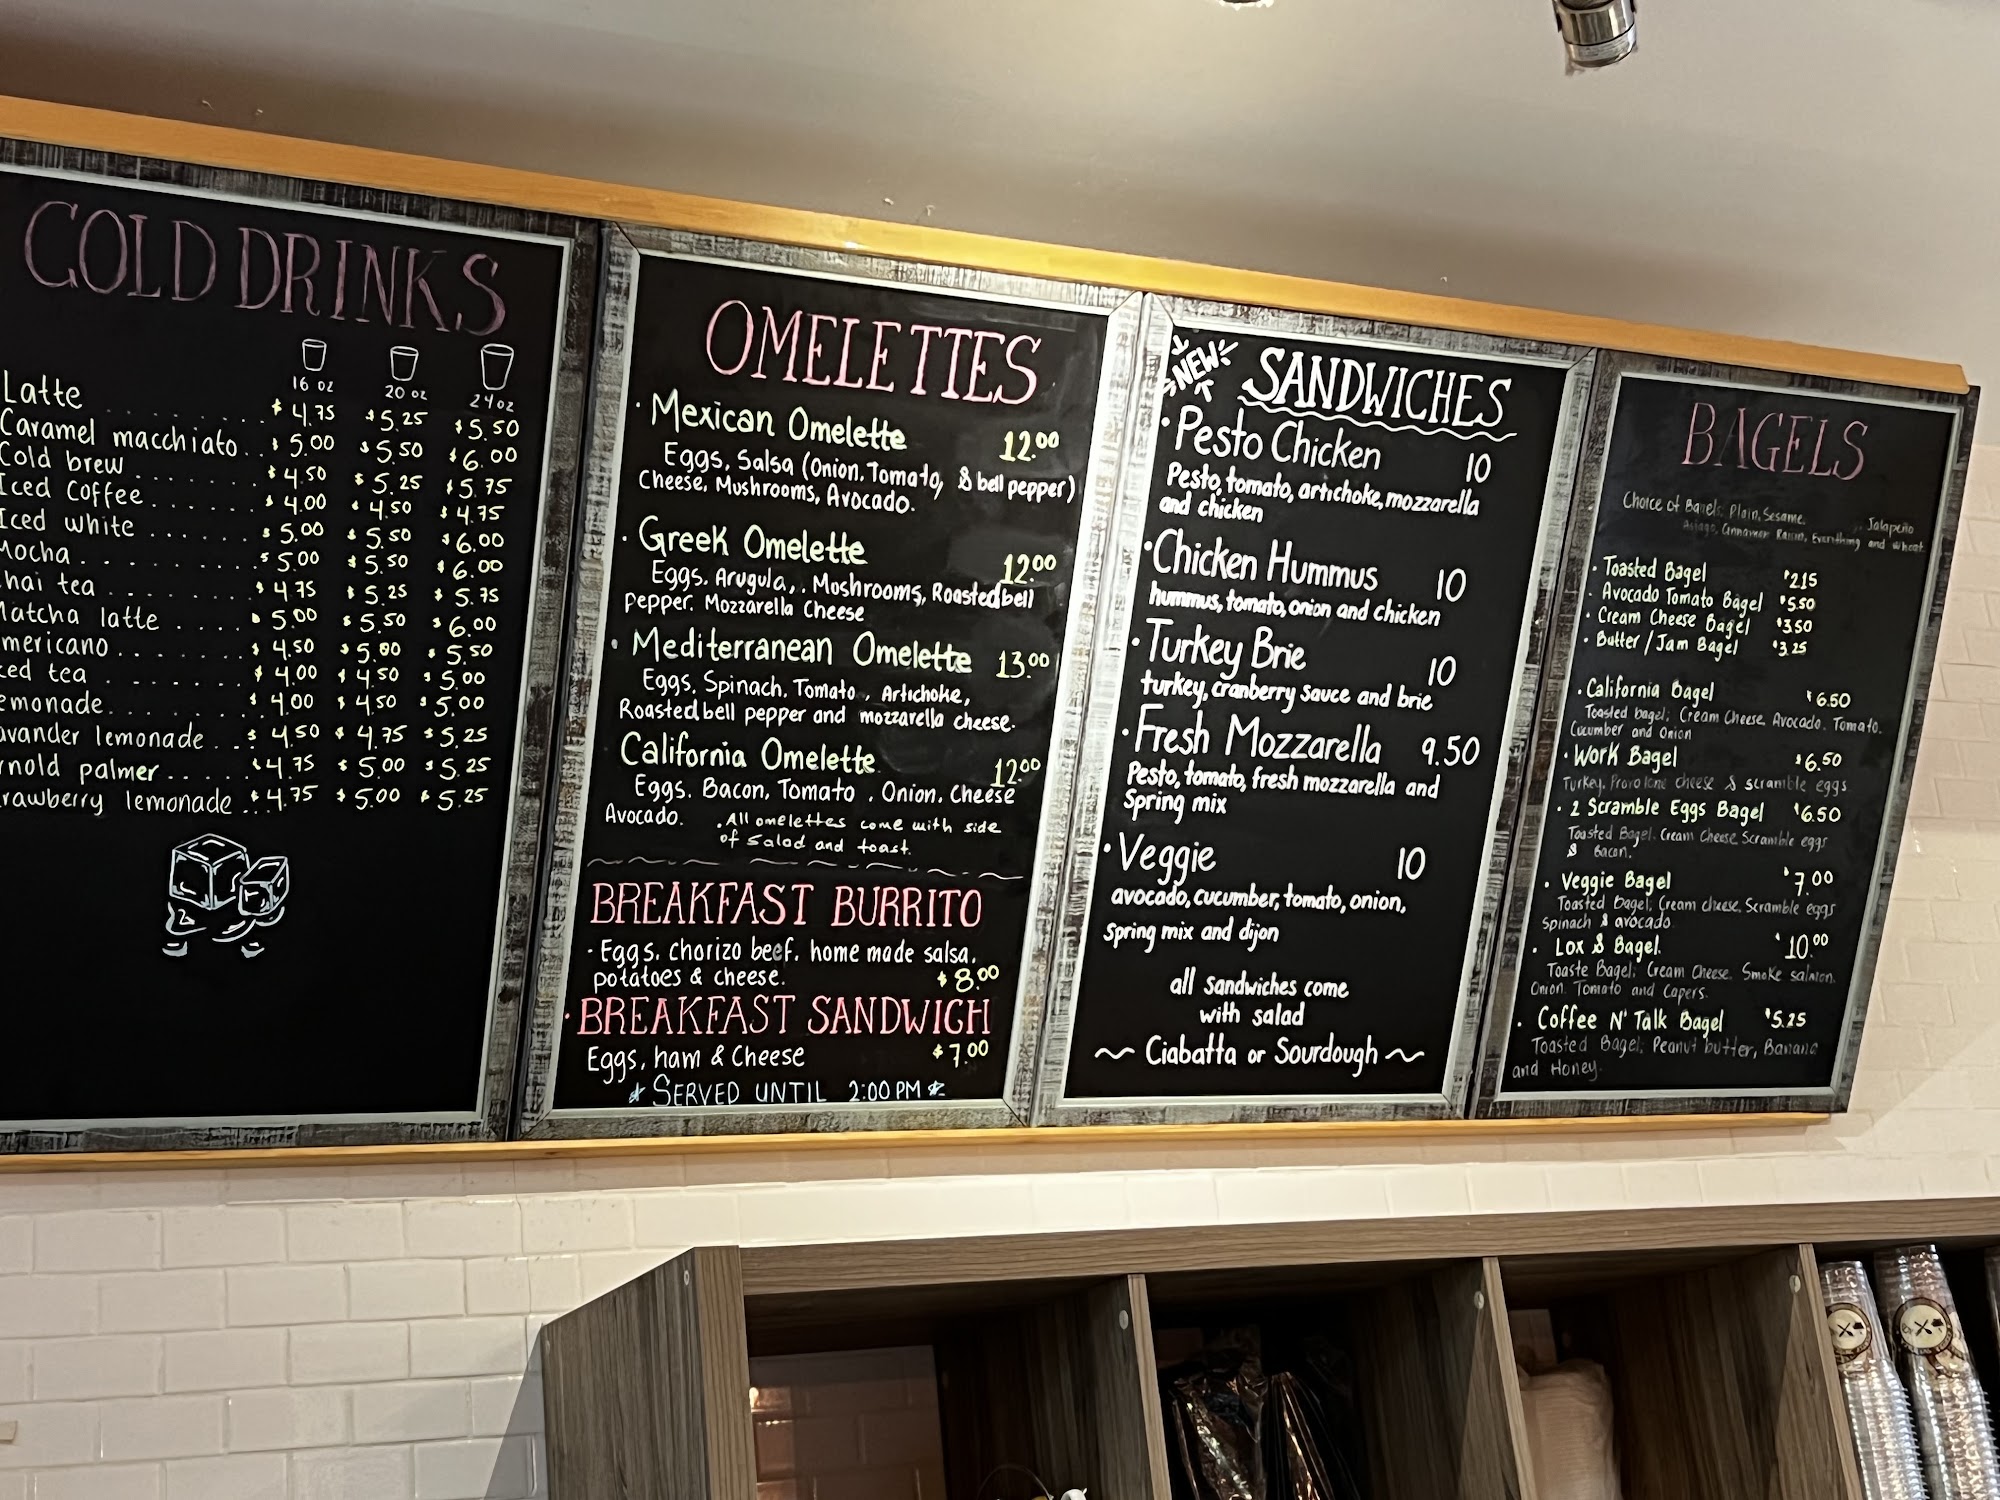 COLD DRINKS
16 oz 20 oz 24 oz
Latte . . . . . . . $4.75 $5.25 $5.50
Caramel macchiato . . $5.00 $5.50 $6.00
Cold brew . . . . . . . $4.50 $5.25 $5.75
Iced Coffee . . . . . . $4.00 $4.50 $4.75
Iced white . . . . . $5.00 $5.50 $6.00
Mocha . . . . . . . . . $5.00 $5.50 $6.00
hai tea . . . . . . . . $4.75 $5.25 $5.75
Matcha latte . . . . $5.00 $5.50 $6.00
mericano . . . . . . . $4.50 $5.00 $5.50
ced tea . . . . . . . $4.00 $4.50 $5.00
emonade . . . . . . . $4.00 $4.50 $5.00
avander lemonade . . $4.50 $4.75 $5.25
rnold palmer . . . . . $4.75 $5.00 $5.25
rawberry lemonade . . . $4.75 $5.00 $5.25
OMELETTES
· Mexican Omelette 12.00
Eggs, Salsa (Onion, Tomato, & bell pepper)
Cheese, Mushrooms, Avocado.
· Greek Omelette 12.00
Eggs, Arugula, . Moshrooms, Roasted bell
pepper. Mozzarella Cheese
· Mediterranean Omelette 13.00
Eggs, Spinach, Tomato , Artichoke,
Roasted bell pepper and mozzarella cheese.
California Omelette 12.00
Eggs. Bacon, Tomato . Onion. Cheese
Avocado.
. All omelettes come with side
of salad and toast.
BREAKFAST BURRITO
· Eggs. chorizo beef. home made salsa.
potatoes & cheese. $8.00
· BREAKFAST SANDWICH
Eggs, ham & Cheese $7.00
SERVED UNTIL 2:00 PM
NEW
SANDWICHES
· Pesto Chicken 10
Pesto, tomato, artichoke, mozzarella
and chicken
· Chicken Hummus 10
hummus, tomato, onion and chicken
· Turkey Brie 10
turkey, cranberry sauce and brie
· Fresh Mozzarella 9.50
Pesto, tomato, fresh mozzarella and
Spring mix
· Veggie 10
avocado, cucumber, tomato, onion,
Spring mix and dijon
all sandwiches come
with salad
~ Ciabatta or Sourdough ~
BAGELS
Choice of Bagel: Plain, Sesame. Jalapeño
Asiago, Cinnamon Raisin, Everything and wheat
· Toasted Bagel $2.15
· Avocado Tomato Bagel $5.50
· Cream Cheese Bagel $3.50
· Butter / Jam Bagel $3.25
· California Bagel $6.50
Toasted bagel; Cream Cheese, Avocado. Tomato.
Cucumber and Onion
· Work Bagel $6.50
Turkey, Provolone cheese & scramble eggs
· 2 Scramble Eggs Bagel $6.50
Toasted Bagel. Cream Cheese Scramble eggs
& Bacon.
· Veggie Bagel $7.00
Toasted Bagel; Cream cheese, Scramble eggs
Spinach & avocado
· Lox & Bagel. $10.00
Toaste Bagel; Cream Cheese. Smoke salmon.
Onion. Tomato and Capers.
· Coffee N' Talk Bagel $5.25
Toasted Bagel; Peanut butter, Banana
and Honey.